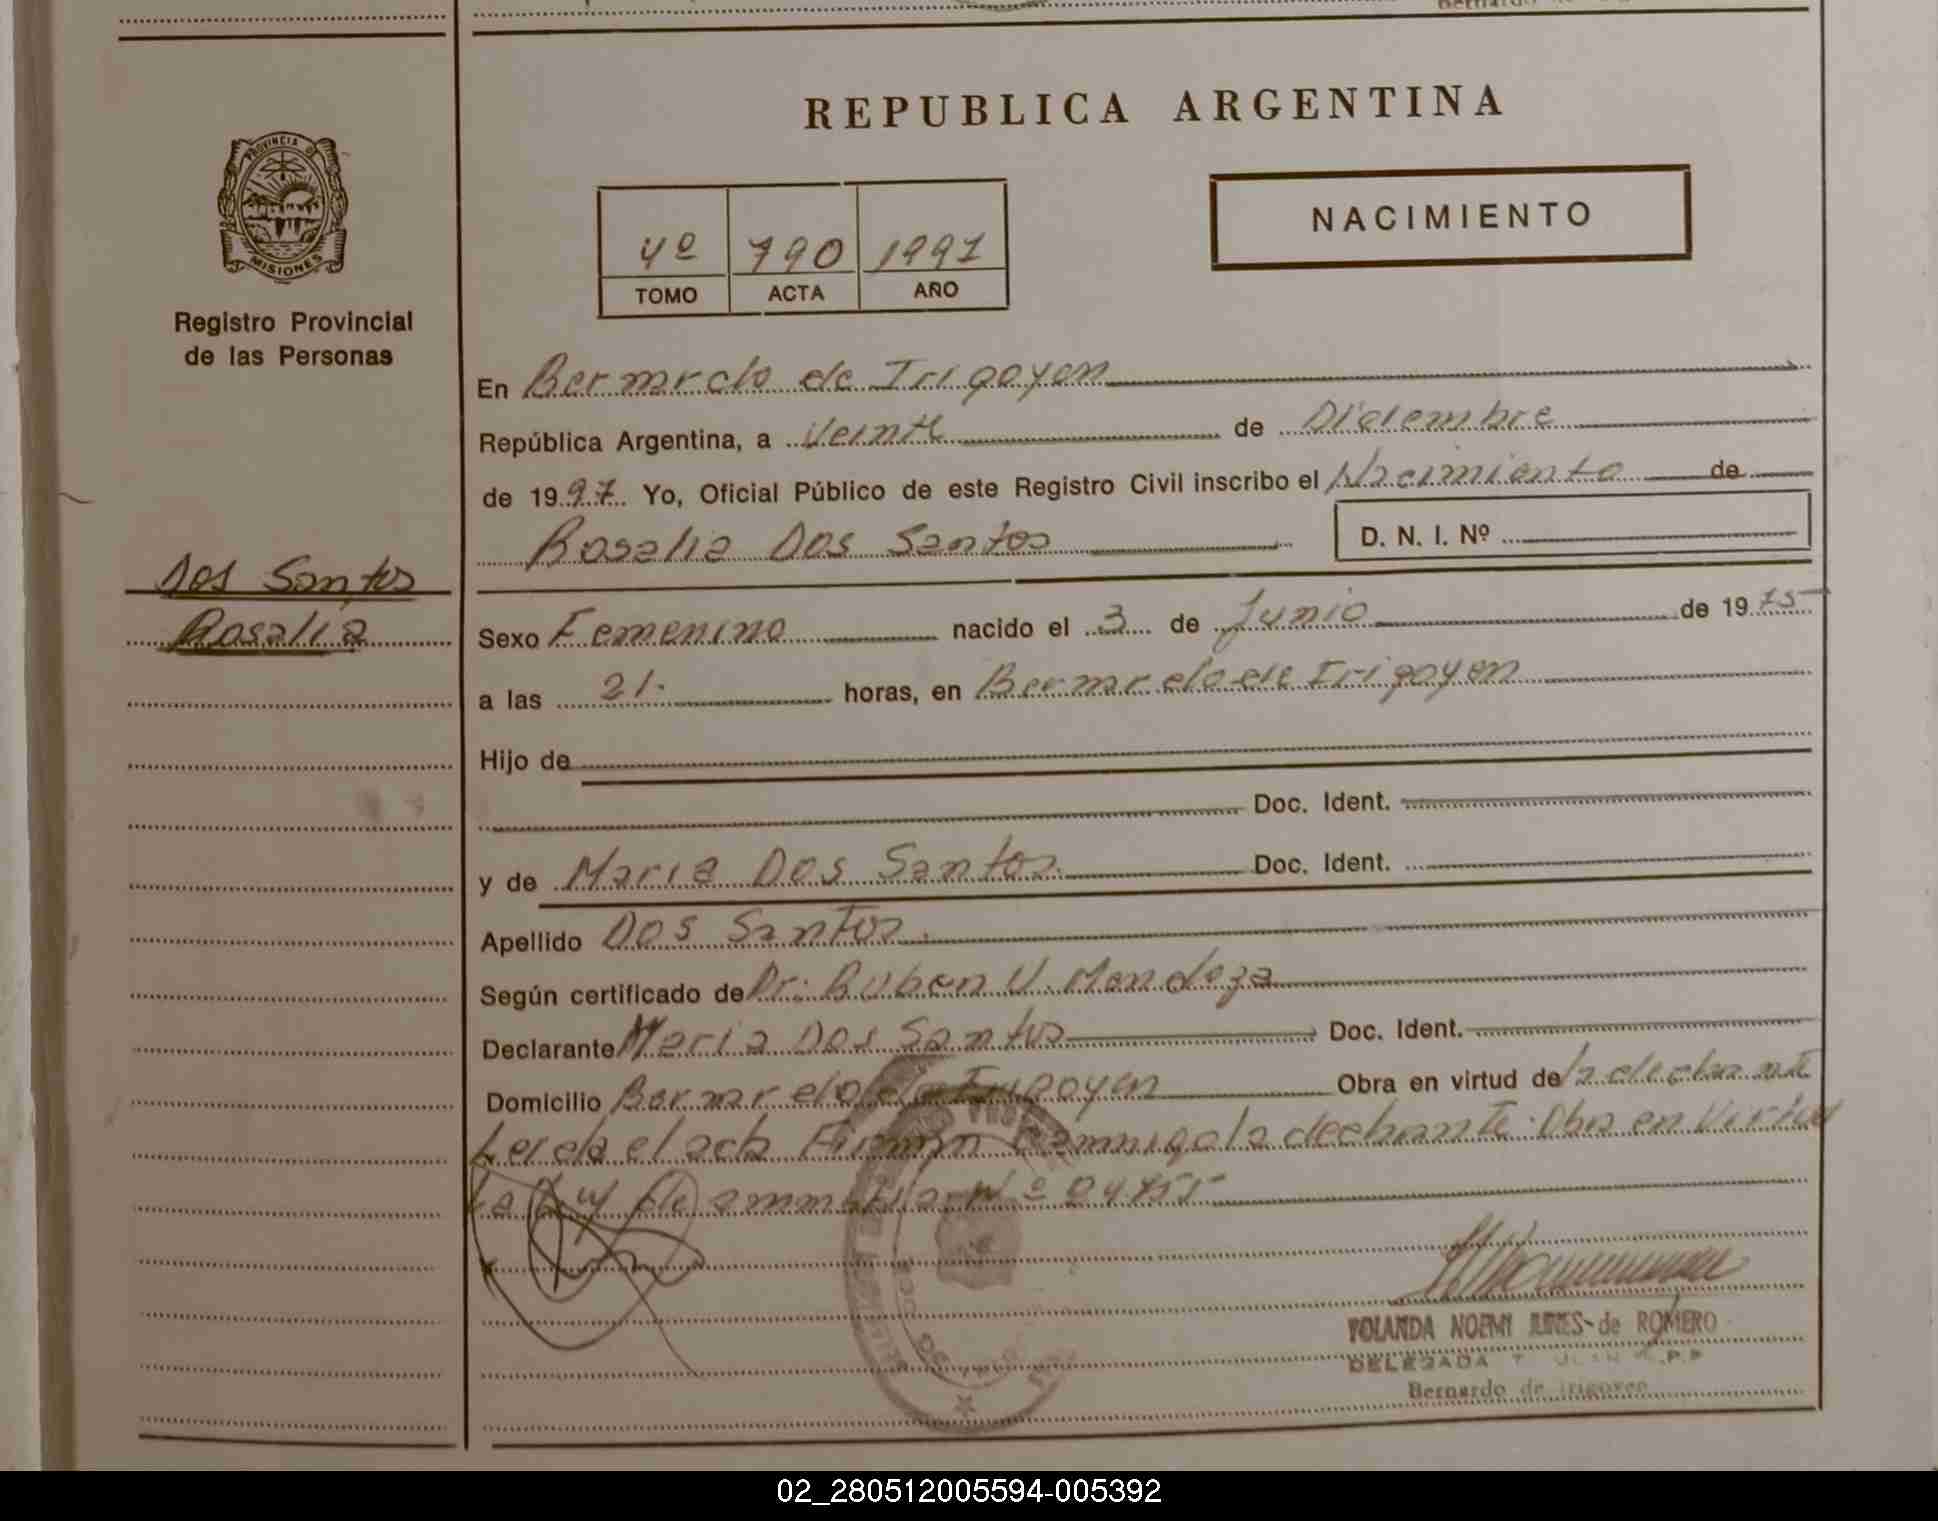 REPUBLICA ARGENTINA
PROVINCIA DE
MISIONES
Registro Provincial
de las Personas
4º 790 1997
TOMO ACTA AÑO
NACIMIENTO
En Bernardo de Irigoyen
República Argentina, a Veinte de Diciembre
de 1997 Yo, Oficial Público de este Registro Civil inscribo el Nacimiento de
Rosalia Dos Santos D. N. I. Nº
Dos Santos
Rosalia
Sexo Femenino nacido el 3 de Junio de 1975
a las 21. horas, en Bernardo de Irigoyen
Hijo de
Doc. Ident.
y de Maria Dos Santos. Doc. Ident.
Apellido Dos Santos.
Según certificado de Dr: Ruben V. Mendoza
Declarante Maria Dos Santos Doc. Ident.
Domicilio Bernardo de Irigoyen Obra en virtud de la declarante
Leida el acta Firman conmigo la declarante. Obra en Virtud
La Ley de amnistia Nº
YOLANDA NOEMI de ROMERO
DELEGADA
Bernardo de Irigoyen
02_280512005594-005392